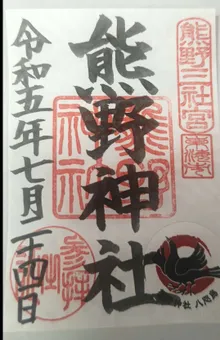 熊野三社宮
熊野神社
熊野神社
令和五年七月二十四日
参拝
神社 八咫烏